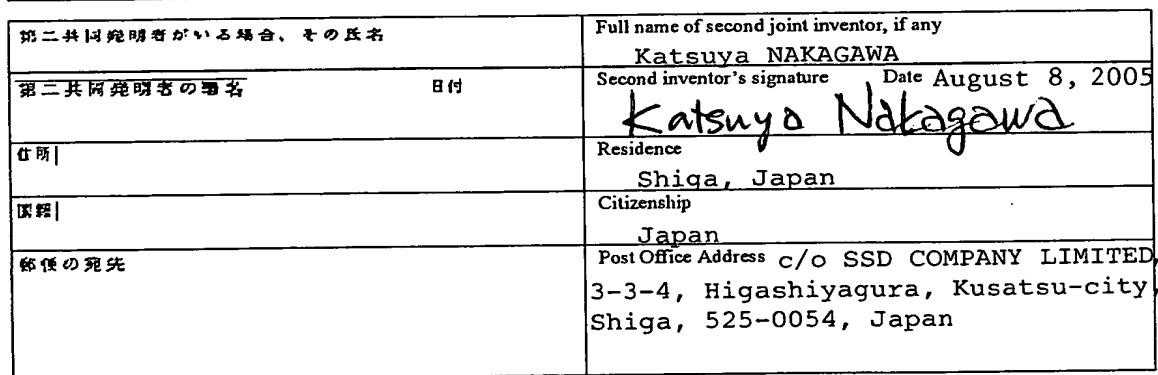 第二共同発明者がいる場合、その氏名
Full name of second joint inventor, if any
Katsuya NAKAGAWA
第二共同発明者の署名 日付
Second inventor's signature Date August 8, 2005
Katsuya Nakagawa
住所
Residence
Shiga, Japan
国籍
Citizenship
Japan
郵便の宛先
Post Office Address c/o SSD COMPANY LIMITED,
3-3-4, Higashiyagura, Kusatsu-city,
Shiga, 525-0054, Japan